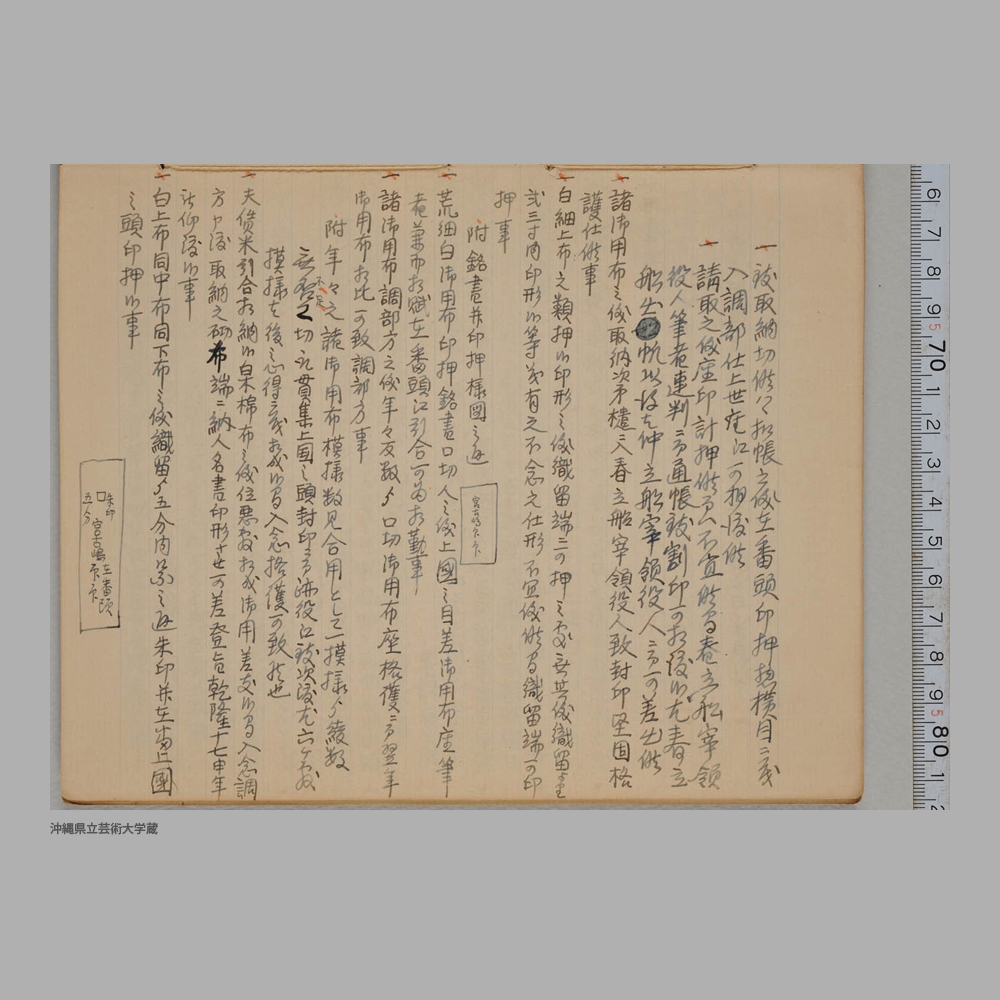 一 被取納切候ハヽ扣帳之儀在番頭印押惣横目ニ
入調部仕上世座江可相渡候
一 請取之儀座印計押候而ハ不宜候間春立船宰領
役人筆者連判ニ而通帳被割印可相渡候尤春立
船出帆以後者仲立船宰領役人ニ而可差出候
一 諸御用布之儀取納次第櫃ニ入春立船宰領役人致封印堅固格
護仕候事
一 白細上布之類押候印形之儀織留端ニ可押之処無其儀織留
弐三寸内印形候等茂有之不念之仕形不宜儀候間織留端可印
押事
附銘書并印押様図之通
一 荒細白御用布印押銘書口切人之儀上国之目差御用布座筆
者兼而相賦在番頭江引合可為相勤事
一 諸御用布調部方之儀年々反数より口切御用布座格護ニ而翌年
御用布相比可致調部方事
附年々之諸御用布模様数見合用として一模様より綾数
不足
切取貫集上国之頭封印ニ而跡役江被次渡尤六ヶ敷
模様者後之心得ニ茂相成候間入念格護可致候也
一 夫賃米引合相納候白木棉布之儀位悪敷相成御用差支候間入念調
方申渡取納之砌布端ニ納人名書印形させ可差登旨乾隆十七申年
被仰渡候事
一 白上布同中布同下布之儀織留より五分内ニ之通朱印并在番上国
之頭印押候事
朱印
五分
宮古嶋在番頭
沖縄県立芸術大学蔵